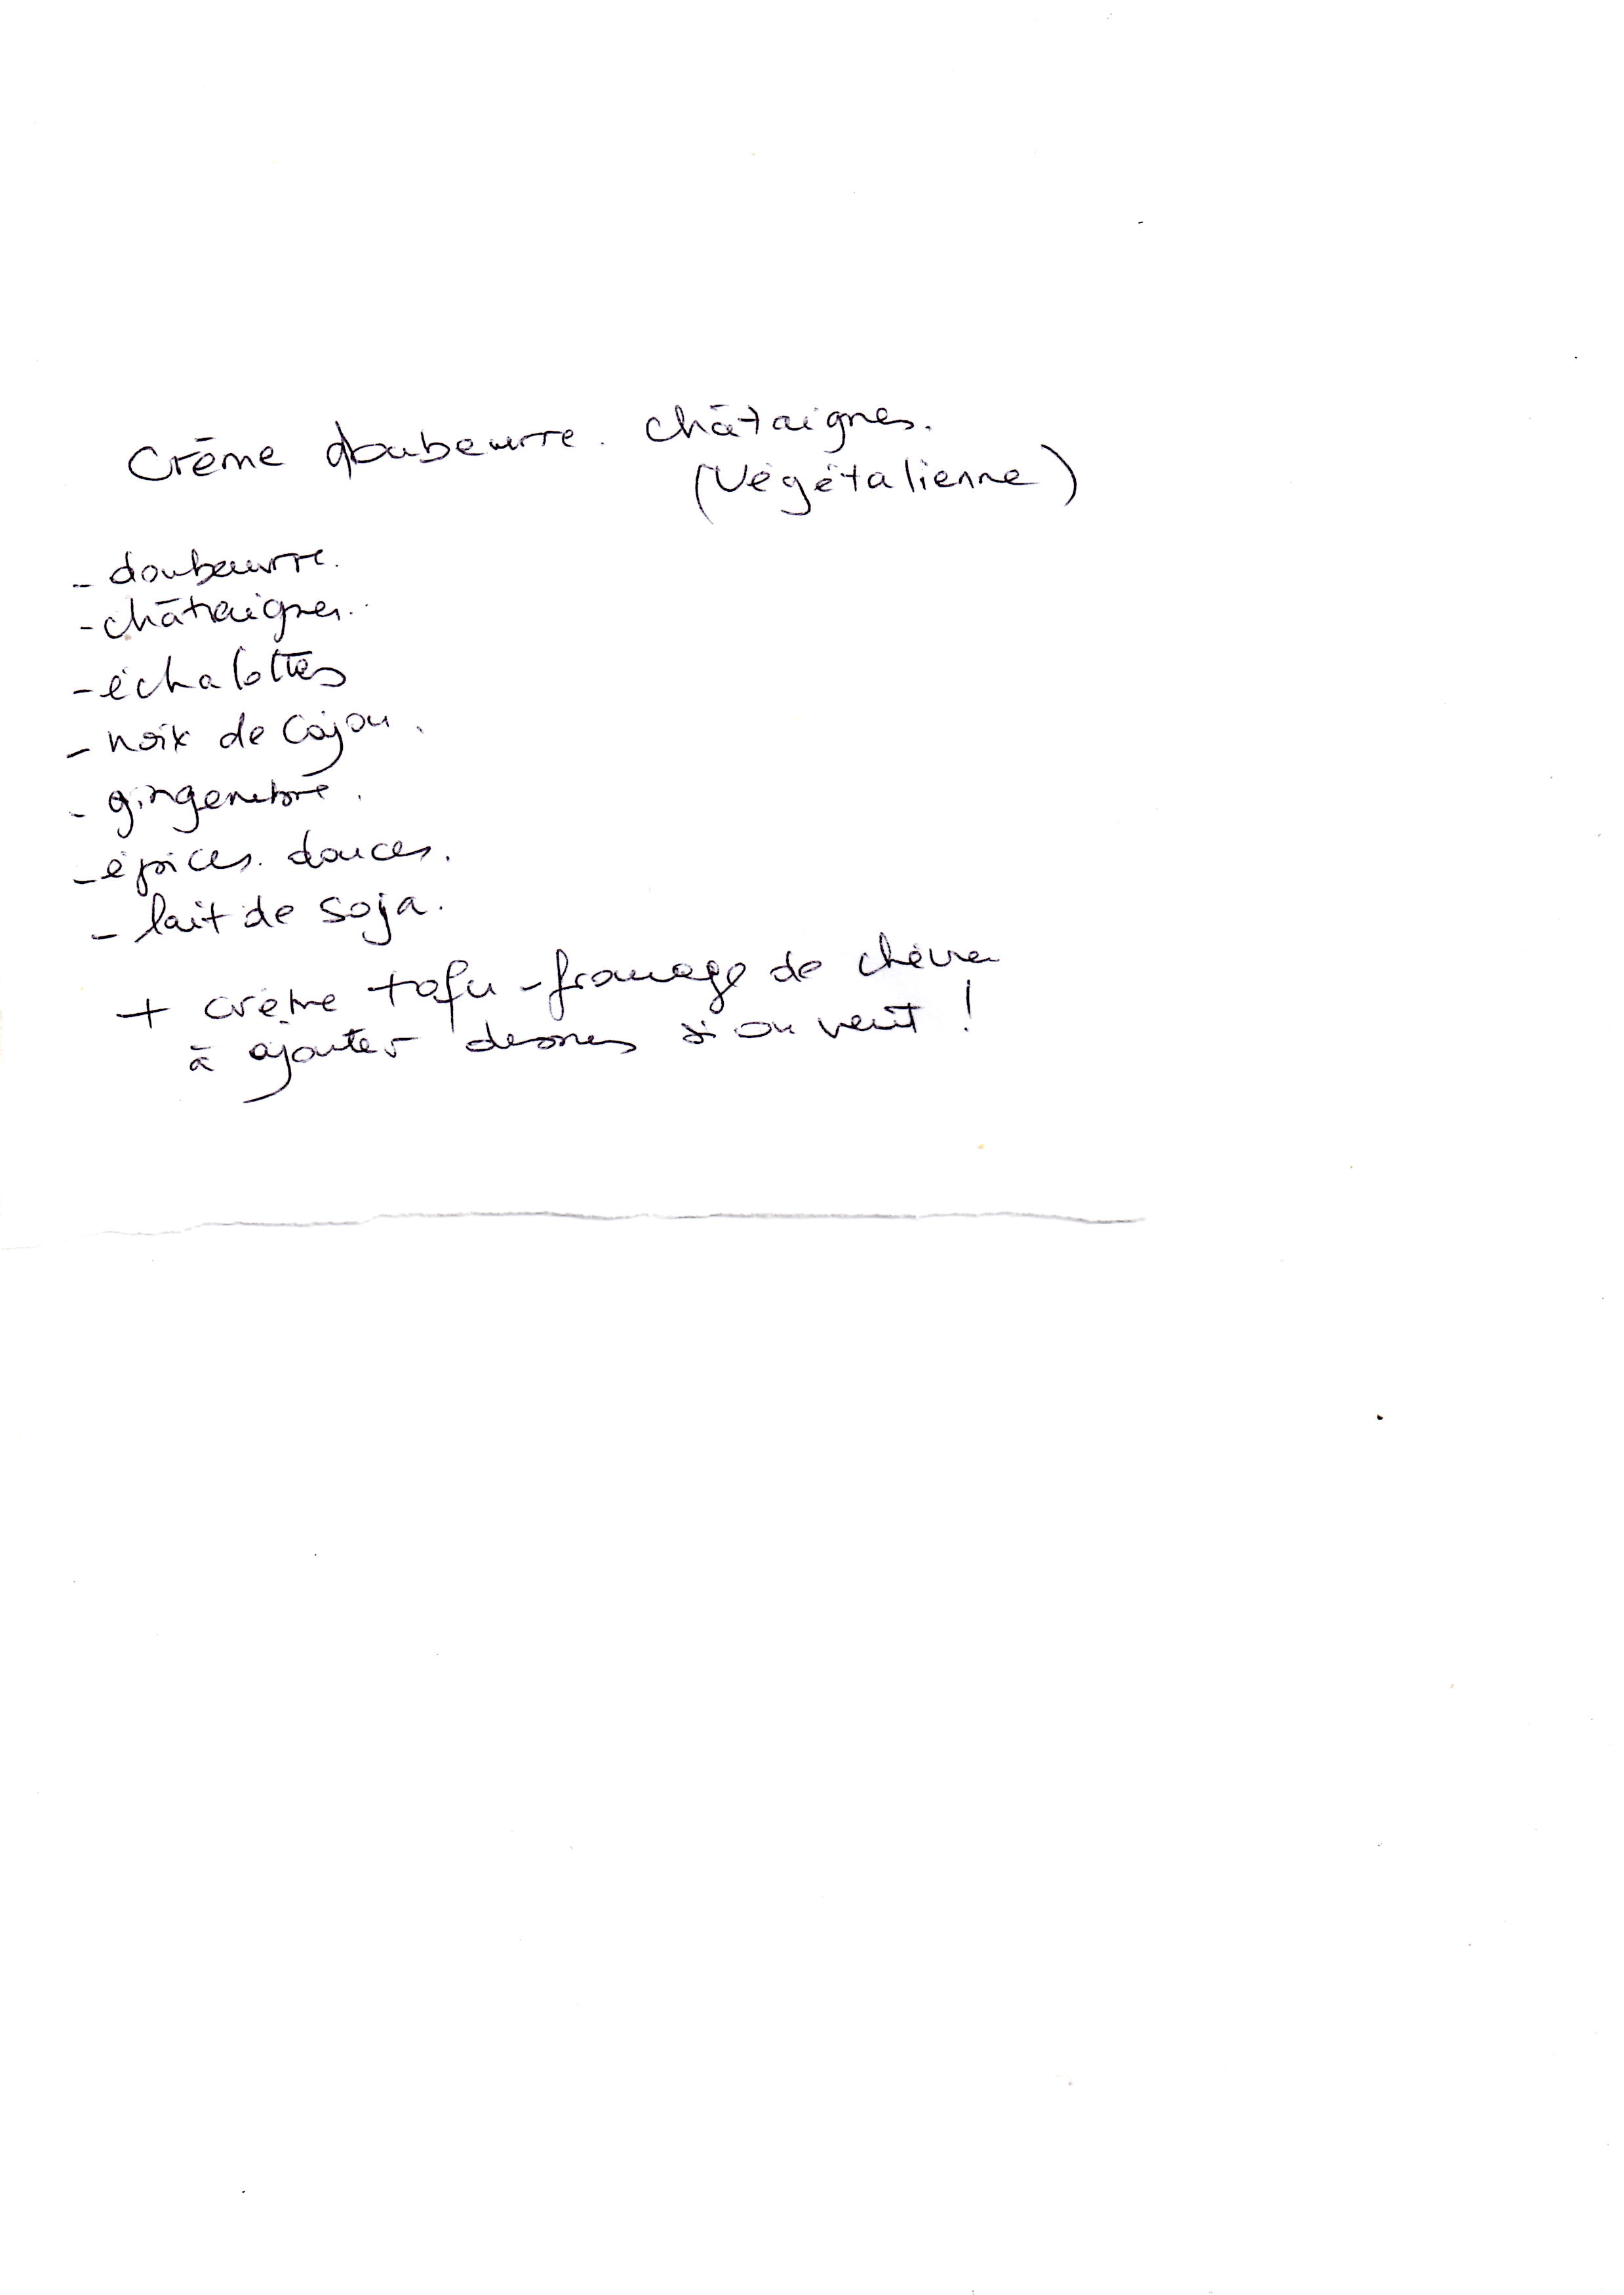 Crème doubeurre. châtaignes.
(végétalienne)
- doubeurre.
- châtaignes.
- échalottes
- noix de Cajou.
- gingembre.
- épices. douces.
- lait de soja.
+ crème tofu - fromage de chèvre
à ajouter dessus si on veut !